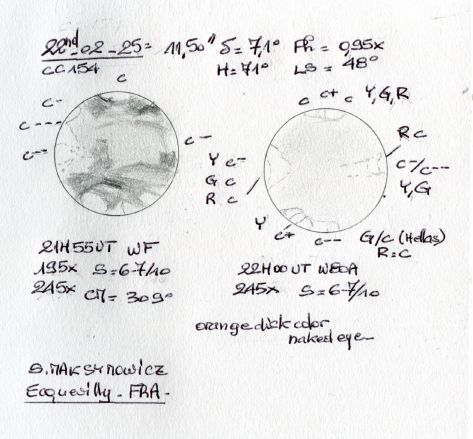 22nd-02-25= 11,50" δ= 7,1° Ph= 0,95x
CC154 H= 71° LS= 48°
C C C+ C Y,G,R
C-
C---
C-- C-- RC
Y C- C-/C--
G C Y,G
R C
Y
C+ C-- G/C (Hellas)
R=C
21H55UT WF
195x S=6-7/10 22H00UT W80A
245x CM= 309° 245x S=6-7/10
orange disk color
naked eye-
S. MAKSYMOWICZ
Ecquevilly - FRA-